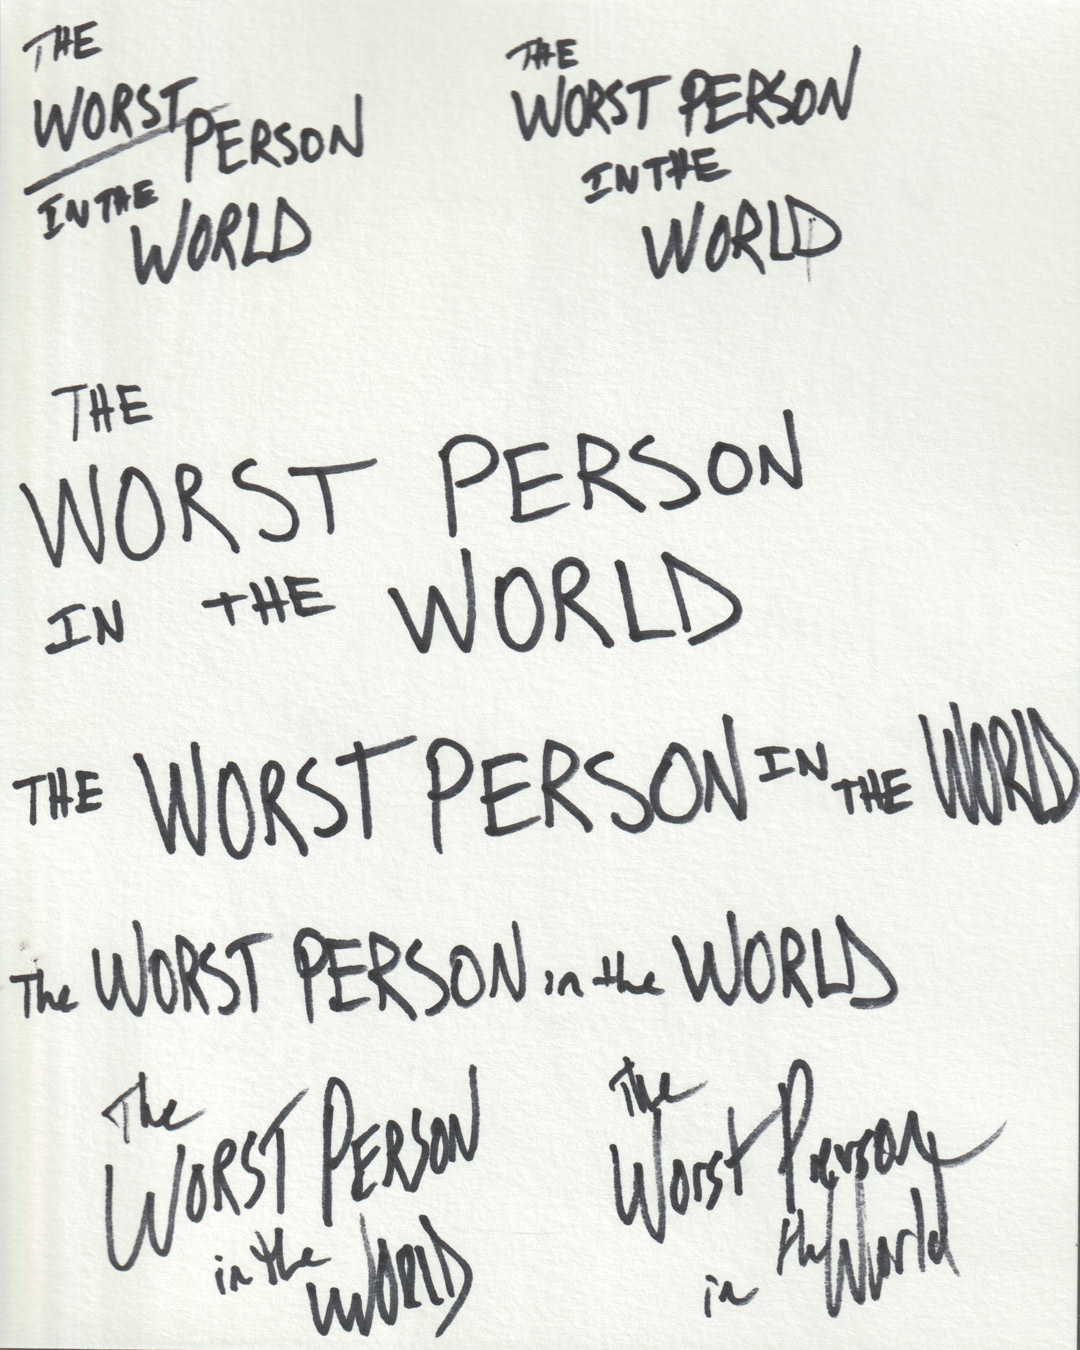 THE
WORST PERSON
IN THE
WORLD
THE
WORST PERSON
IN THE
WORLD
THE
WORST PERSON
IN THE WORLD
THE WORST PERSON IN THE WORLD
The WORST PERSON in the WORLD
The
WORST PERSON
in the
WORLD
The
Worst Person
in the World